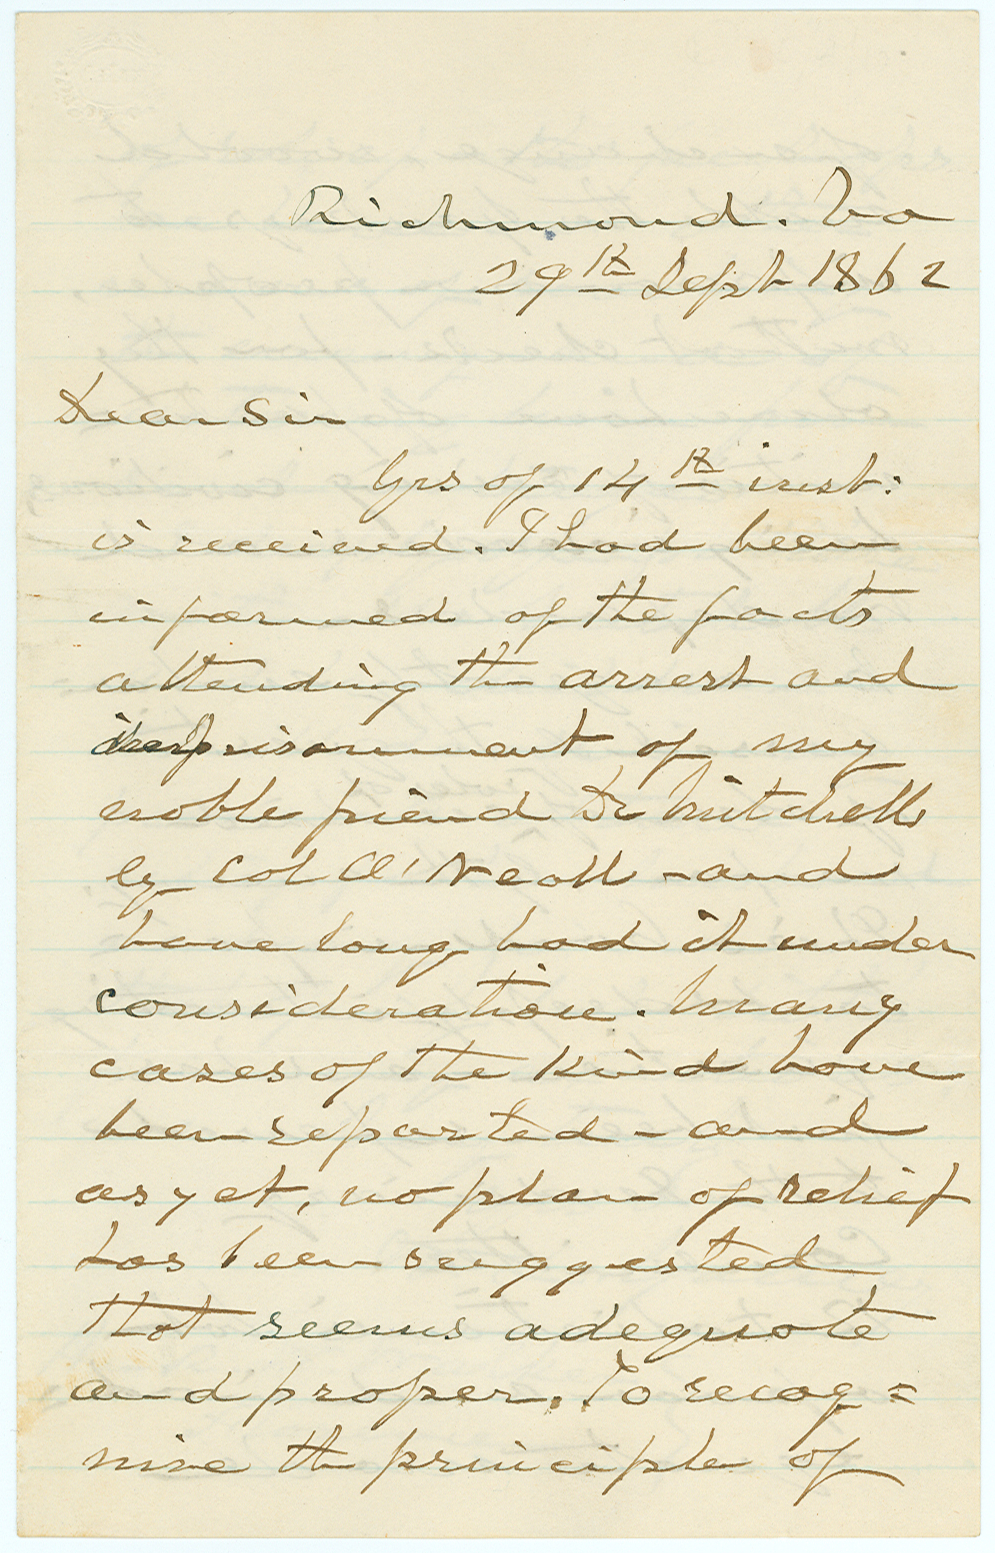 Richmond. Va
29th Sept 1862
Dear Sir
Yrs of 14th inst:
is received. I had been
informed of the facts
attending the arrest and
imprisonment of my
noble friend Dr Mitchell
by Col O'Neall - and
have long had it under
consideration. Many
cases of the kind have
been reported - and
as yet, no plan of relief
has been suggested
that seems adequate
and proper. To recog=
nise the principle of